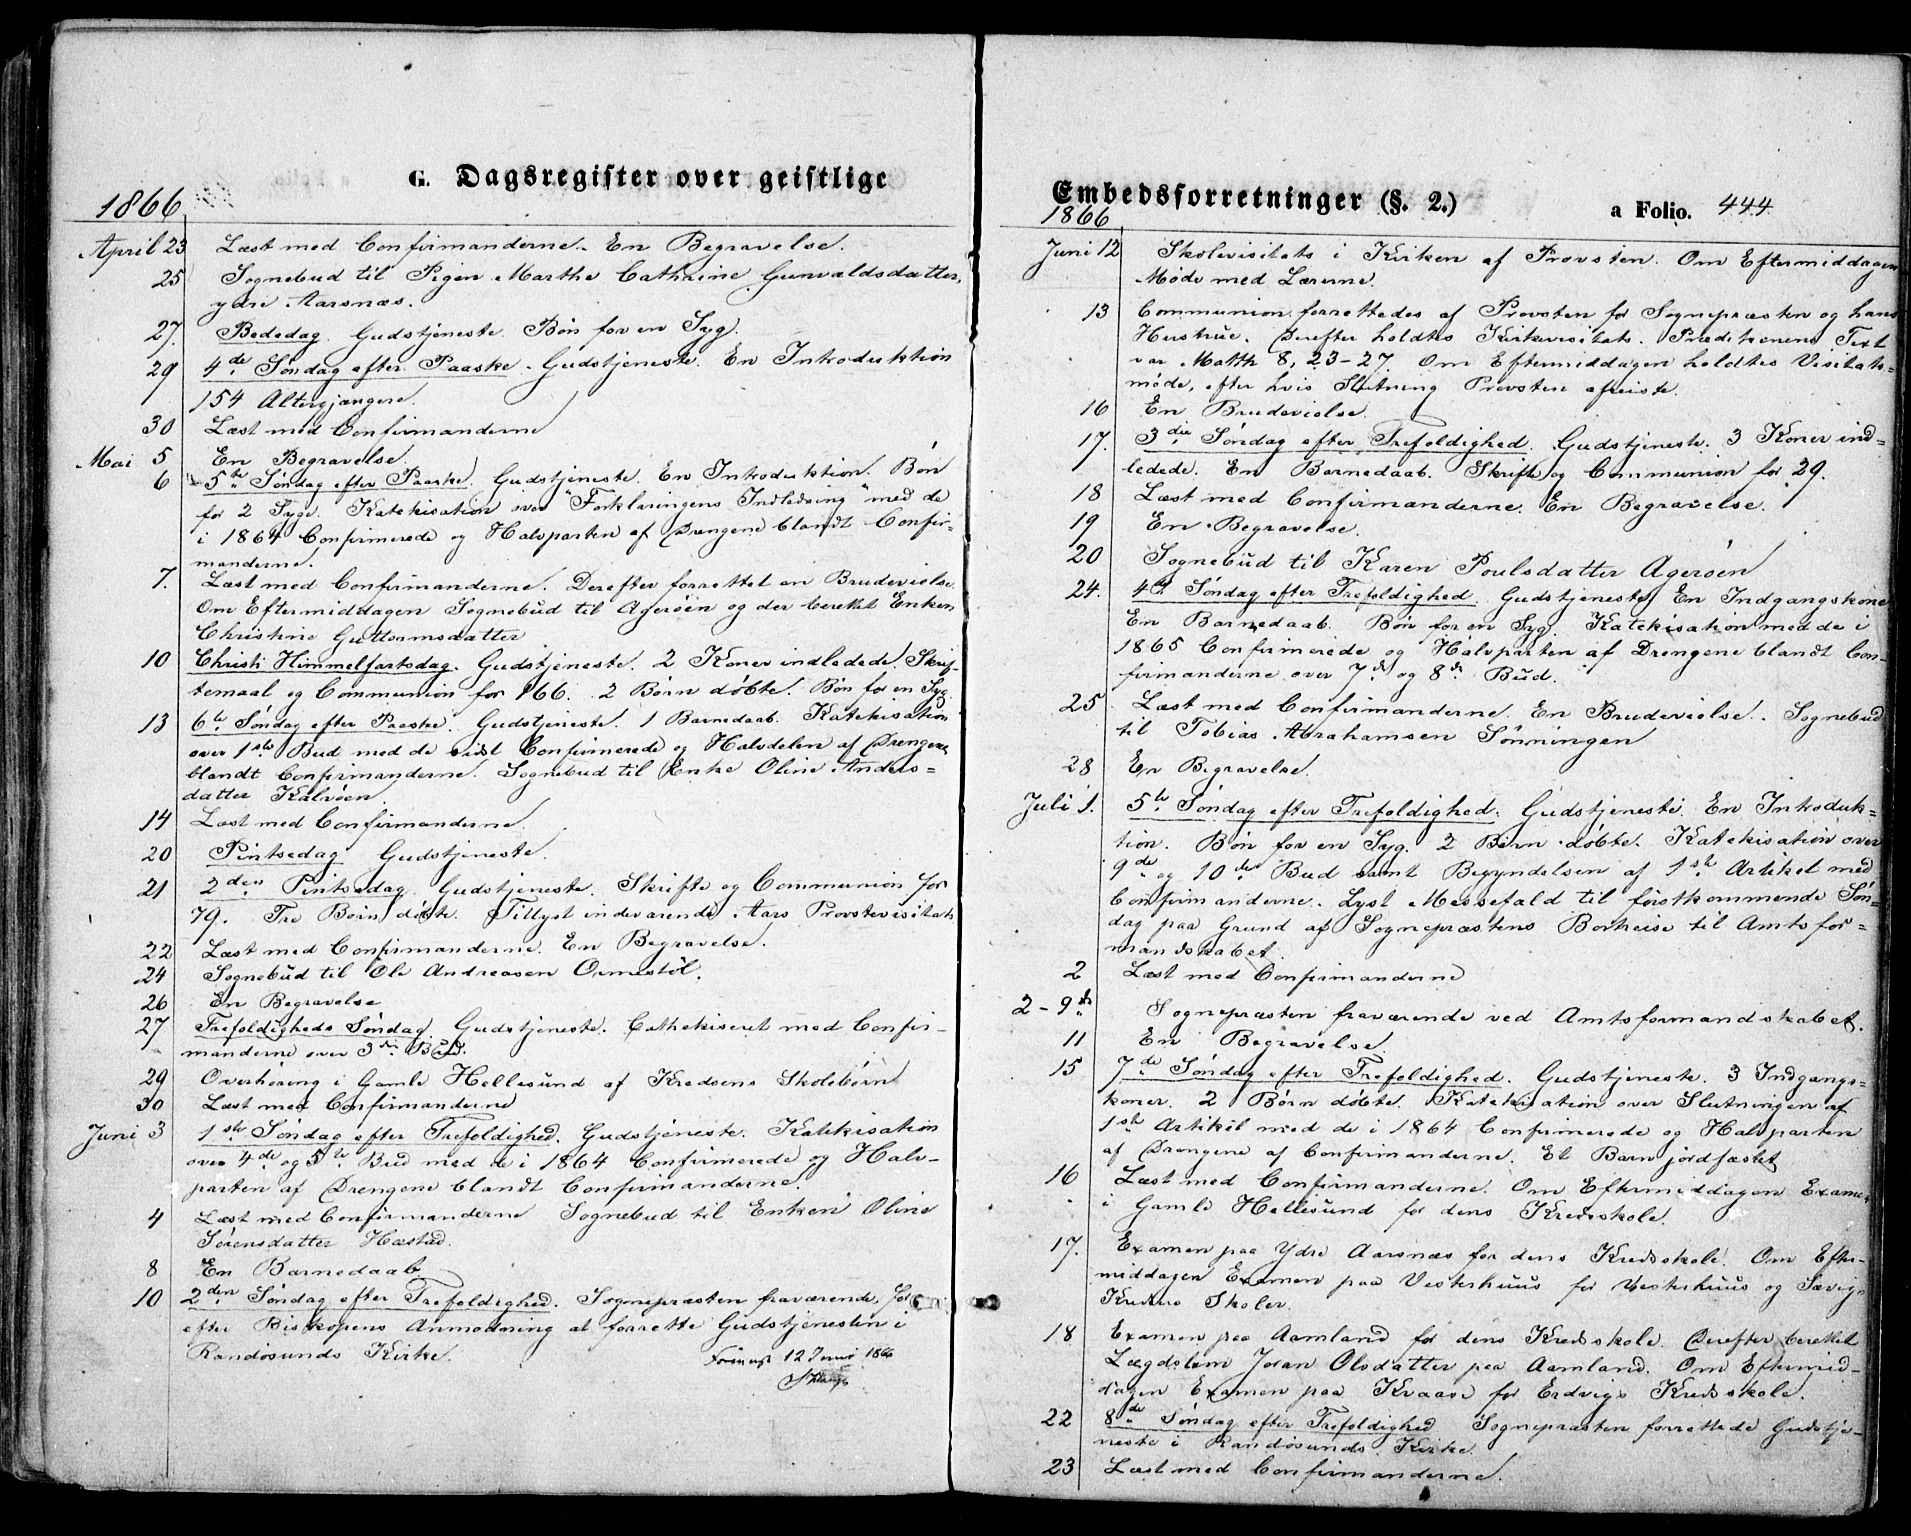 G. Dagsregister over geistlige
1866
April 23 Læst med Confirmanderne. En Begravelse.
25 Sognebud til Pigen Marthe Cathrine Gunvaldsdatter,
ydre Aarsnæs.
27. Bededag. Gudstjeneste. Bøn for en Syg.
29 4de Søndag efter Paaske. Gudstjeneste. En Introduktion
154 Altergjængere.
30 Læst med Confirmanderne
Mai 5 En Begravelse.
6 5te Søndag efter Paaske. Gudstjeneste. En Introduktion. Bøn
for 2 Syge. Katekisation over "Forklaringens Indledning" med de
i 1864 Confirmerede og Halvparten af Drengene blandt Confir-
manderne.
7. Læst med Confirmanderne. Derefter forrettet en Brudevielse.
Om Eftermiddagen Sognebud til Agerøen og der berettet Enken
Christine Guttormsdatter
10 Christi Himmelfartsdag. Gudstjeneste. 2 Koner indledede. Skrif-
temaal og Communion for 166. 2 Børn døbte. Bøn for en Syg.
13 6te Søndag efter Paaske. Gudstjeneste. 1 Barnedaab. Katekisation
over 1ste Bud med de sidst Confirmerede og Halvdelen af Drengene
blandt Confirmanderne. Sognebud til Enke Oline Anders-
datter Kalvøen.
14 Læst med Confirmanderne.
20 Pintsedag Gudstjeneste.
21 2den Pintsedag. Gudstjeneste. Skrifte og Communion for
79. Tre Børn døbte. Tillyst indeværende Aars Provstevisitats
22 Læst med Confirmanderne. En Begravelse.
24 Sognebud til Ole Andreasen Ormestøl.
26 En Begravelse
27 Trefoldigheds Søndag. Gudstjeneste. Cathekiseret med Confir-
manderne over 3die Bud.
29 Overhøring i Gamle Hellesund af Kredsens Skolebørn
30 Læst med Confirmanderne
Juni 3 1ste Søndag efter Trefoldighed. Gudstjeneste. Katekisation
over 4de og 5te Bud med de i 1864 Confirmerede og Halv-
parten af Drengene blandt Confirmanderne.
4 Læst med Confirmanderne Sognebud til Enken Oline
Sørensdatter Hæstad.
8 En Barnedaab
10 2den Søndag efter Trefoldighed. Sognepræsten fraværende, for
efter Biskopens Anmodning at forrette Gudstjenesten i
Randøsunds Kirke.
12 Juni 1866
Embedsforretninger (§. 2.)
a Folio. 444
1866
Juni 12 Skolevisitats i Kirken af Provsten. Om Eftermiddagen
Møde med Lærerne.
13 Communion forrettedes af Provsten for Sognepræsten og hans
Hustrue. Derefter holdtes Kirkevisitats. Prædikenens Text
var Matth 8, 23-27. Om Eftermiddagen holdtes Visitats-
møde, efter hvis Slutning Provsten afreiste.
16 En Brudevielse.
17. 3die Søndag efter Trefoldighed. Gudstjeneste. 3 Koner ind-
ledede. En Barnedaab. Skrifte og Communion for 29.
18 Læst med Confirmanderne. En Begravelse.
19 En Begravelse.
20 Sognebud til Karen Poulsdatter Agerøen
24. 4de Søndag efter Trefoldighed. Gudstjeneste. En Indgangskone
En Barnedaab. Bøn for en Syg. Katekisation med de i
1865 Confirmerede og Halvparten af Drengene blandt Con-
firmanderne over 7de og 8de Bud.
25 Læst med Confirmanderne. En Brudevielse. Sognebud
til Tobias Abrahamsen Sønningen
28 En Begravelse.
Juli 1. 5te Søndag efter Trefoldighed. Gudstjeneste. En Introduk-
tion. Bøn for en Syg. 2 Børn døbte. Katekisation over
9de og 10de Bud samt Begyndelsen af 1ste Artikel med
Confirmanderne. Lyst Messefald til førstkommende Søn-
dag paa Grund af Sognepræstens Bortreise til Amtsfor-
mandskabet.
2 Læst med Confirmanderne
2-9de Sognepræsten fraværende ved Amtsformandskabet.
11 En Begravelse.
15 7de Søndag efter Trefoldighed. Gudstjeneste. 3 Indgangs-
koner. 2 Børn døbte. Katekisation over Slutningen af
1ste Artikel med de i 1864 Confirmerede og Halvparten
af Drengene af Confirmanderne. Et Barn jordfæstet
16 Læst med Confirmanderne. Om Eftermiddagen Examen
i Gamle Hellesund for dens Kredsskole.
17. Examen paa Ydre Aarsnæs for dens Kredsskole. Om Efter-
middagen Examen paa Vesterhuus for Vesterhuus og Sævigs
Kredses Skoler.
18 Examen paa Aamland for dens Kredsskole. Derefter berettet
Lægdslem Joran Olsdatter paa Aamland. Om Eftermid-
dagen Examen paa Kvaase for Erdvigs Kredsskole.
22 8de Søndag efter Trefoldighed Sognepræsten forrettede Gudstje-
neste i Randøsunds Kirke.
23 Læst med Confirmanderne.